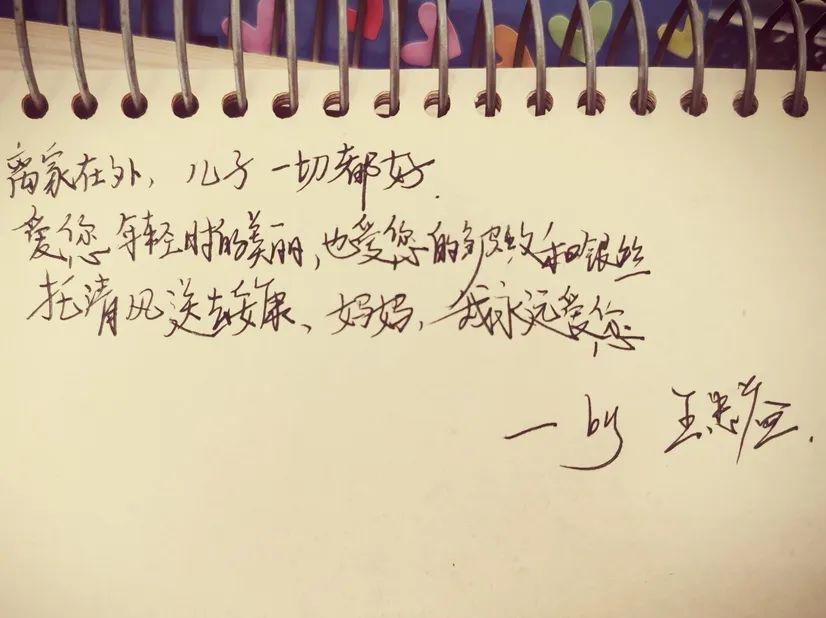 离家在外，儿子一切都好.
爱您年轻时的美丽，也爱您的皱纹和银丝
托清风送去安康、妈妈，我永远爱您
一 by 王